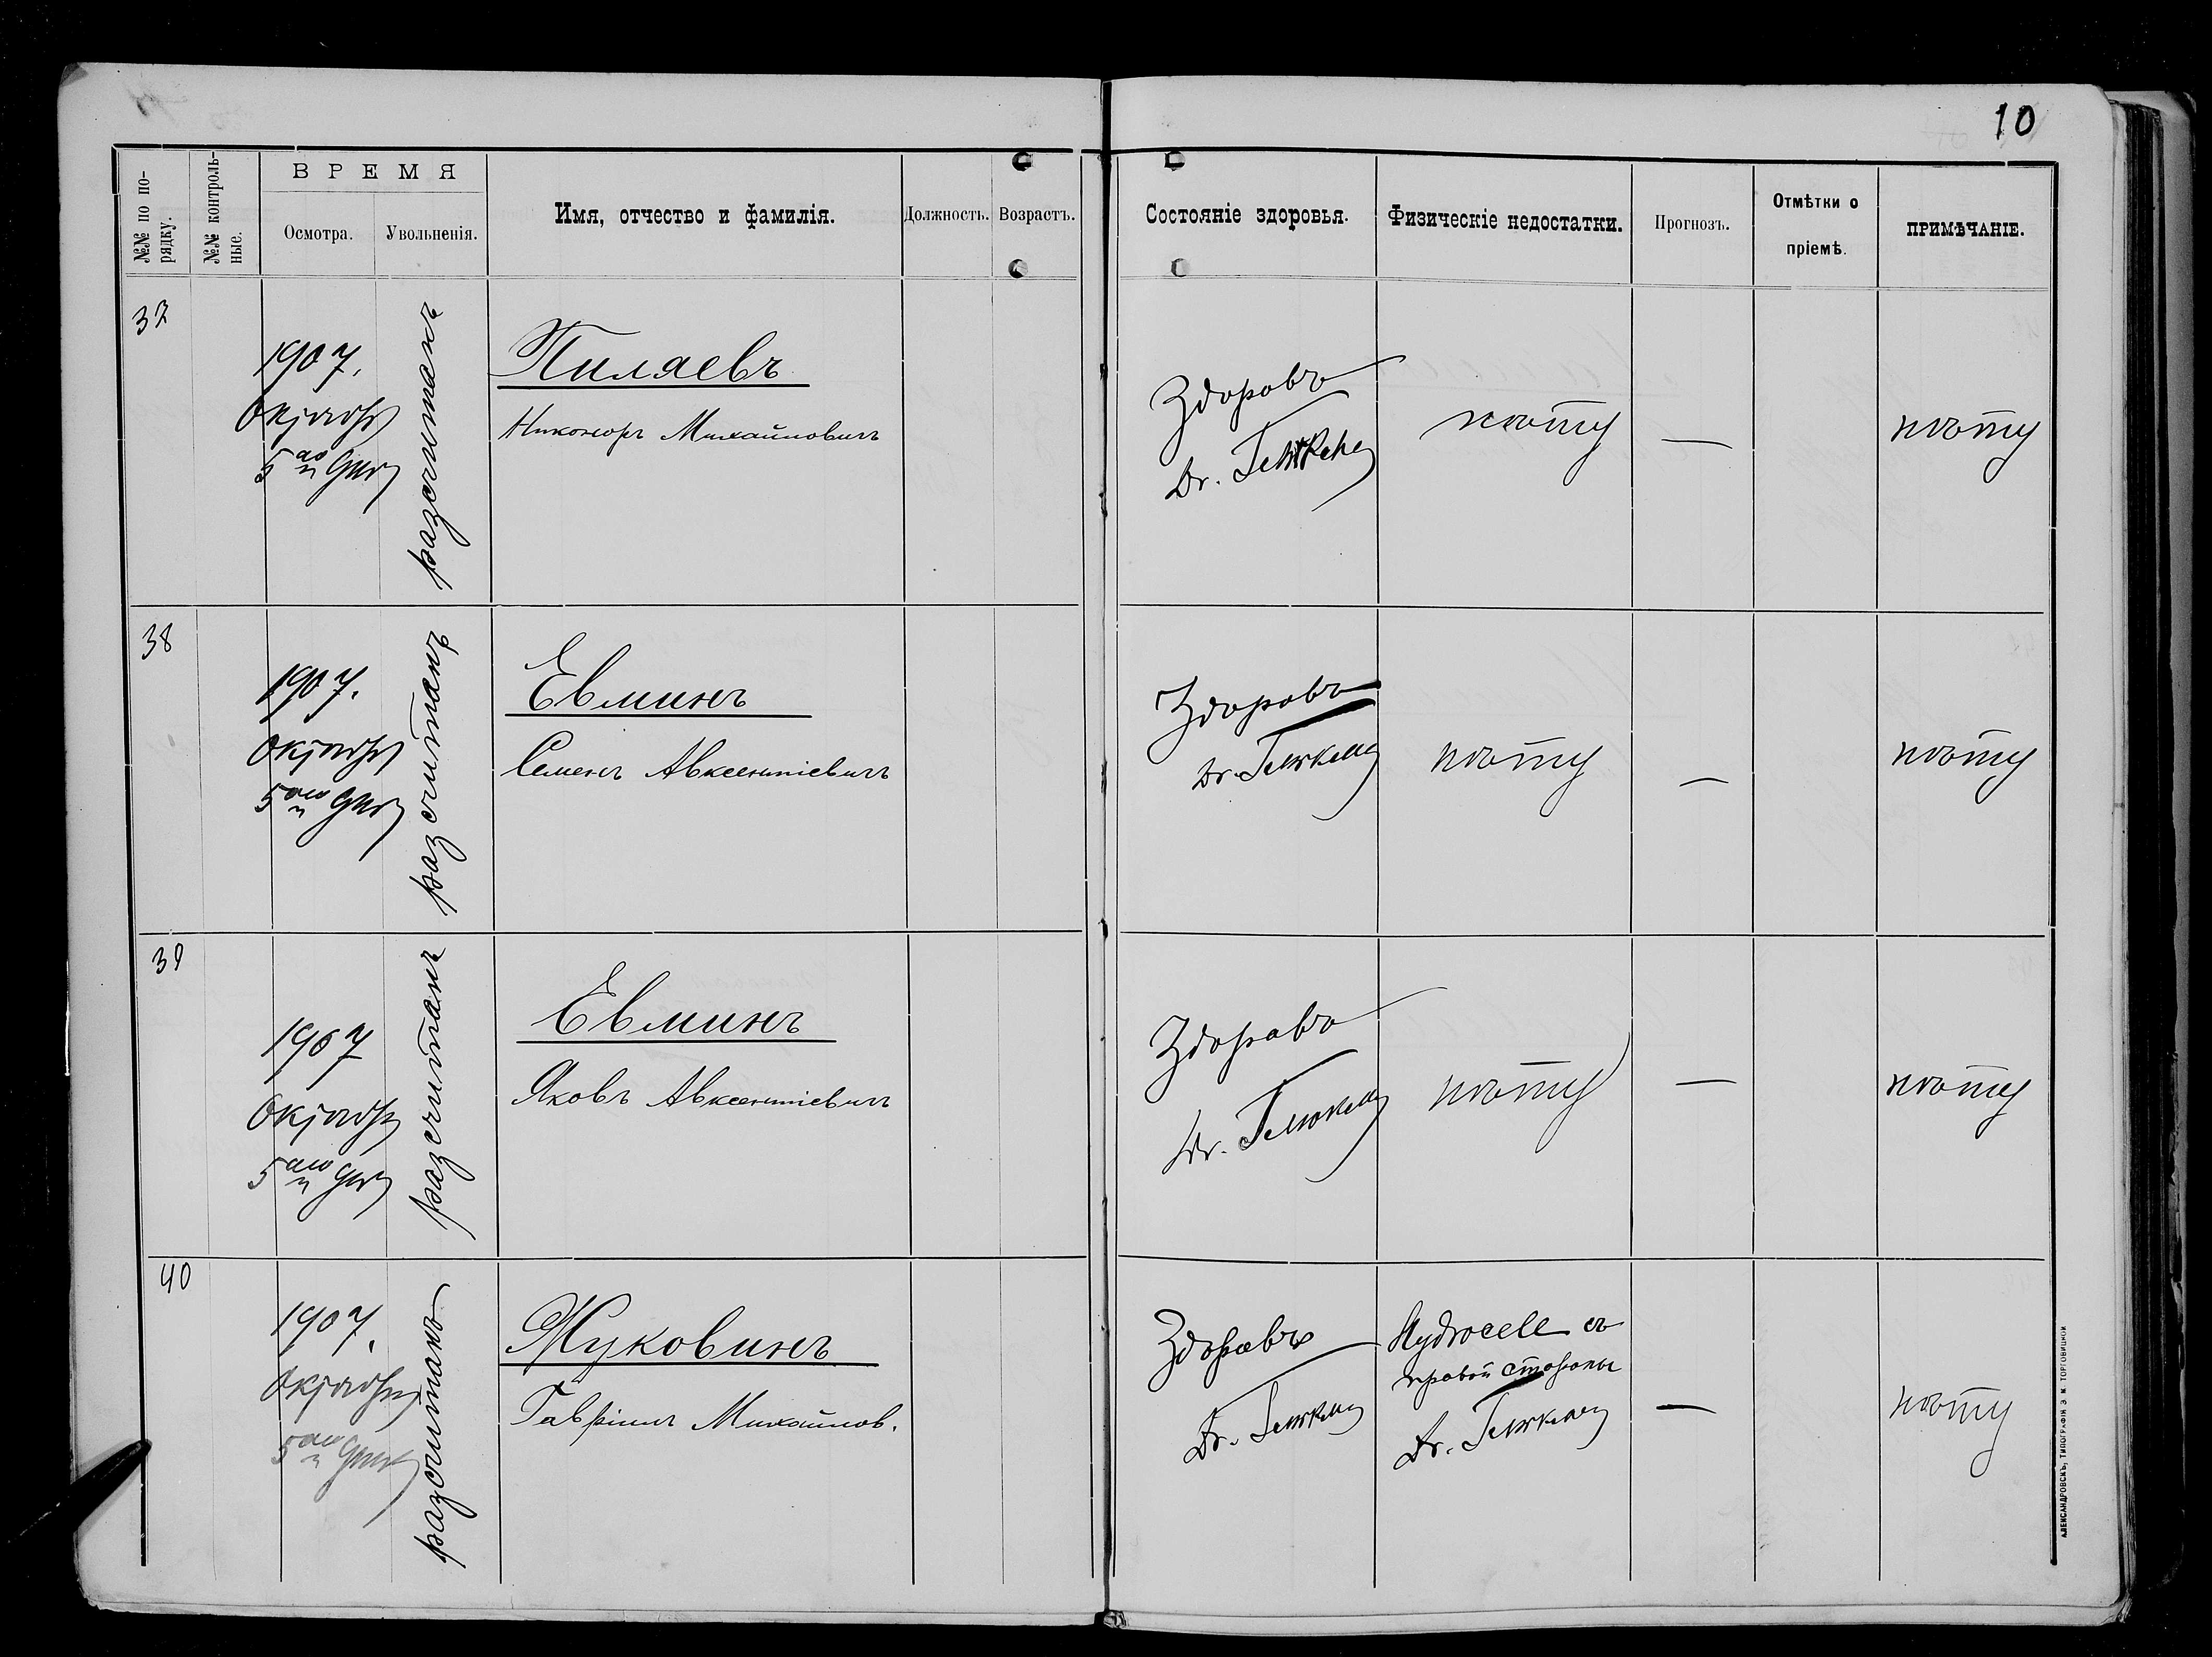 10
№№ по по-
рядку.
№№ контроль-
ные.
ВРЕМЯ
Осмотра.
Увольненія.
Имя, отчество и фамилія.
Должность.
Возрастъ.
Состояніе здоровья.
Физическіе недостатки.
Прогнозъ.
Отмѣтки о
пріемѣ.
ПРИМѢЧАНІЕ.
37
1907.
Октября
5 дня
разсчитанъ
Пиляевъ
Никоноръ Михайловичъ
Здоровъ
Dr.
нѣту
—
нѣту
38
1907.
Октября
5 дня
разсчитанъ
Евминъ
Семенъ Авксентіевичъ
Здоровъ
Dr.
нѣту
—
нѣту
39
1907
Октября
5 дня
разсчитанъ
Евминъ
Яковъ Авксентіевичъ
Здоровъ
Dr.
нѣту
—
нѣту
40
1907.
Октября
5 дня
разсчитанъ
Жуковинъ
Гавріилъ Михайлов.
Здоровъ
Dr.
Hydrocele съ
правой стороны
Dr.
—
нѣту
АЛЕКСАНДРОВСКЪ, ТИПОГРАФІЯ Э. М. ТОРГОВИЦКОЙ